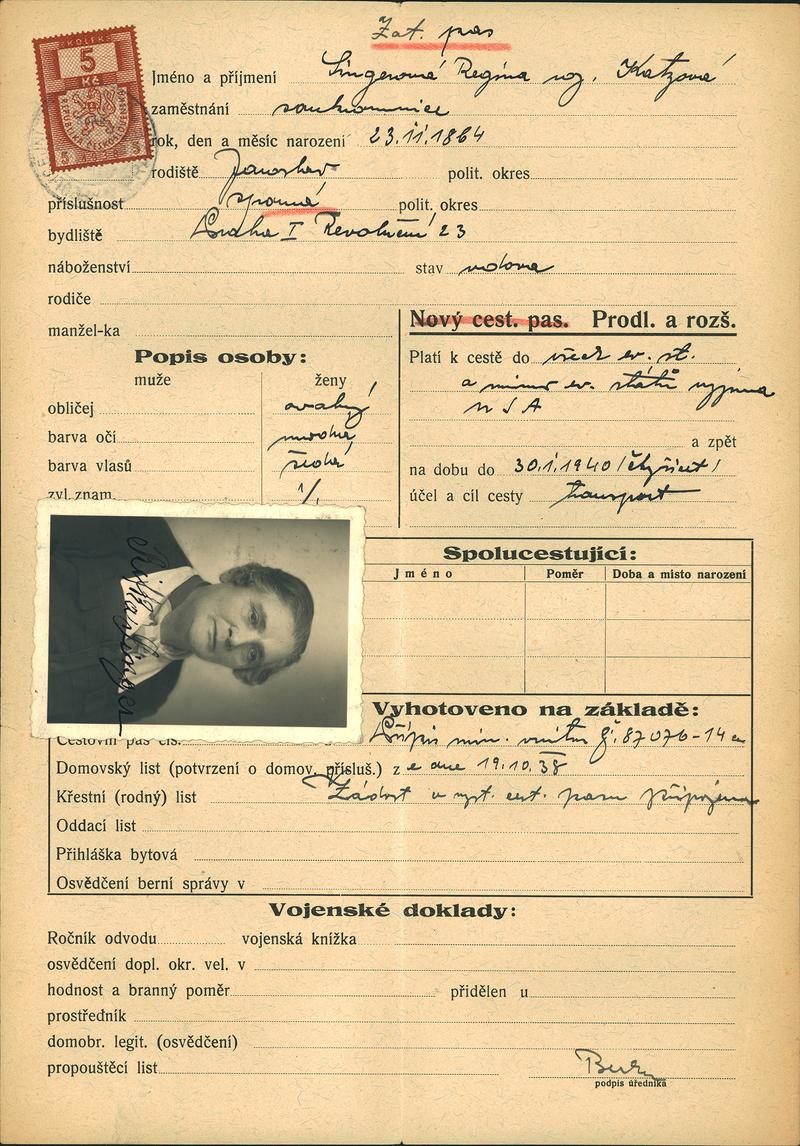 Zat. pas
KOLEK
5
Kč
REPUBLIKA ČESKOSLOVENSKÁ
5 5
Jméno a příjmení Singerová Regina roz. Katzová
zaměstnání soukromnice
rok, den a měsíc narození 23.II.1864
rodiště Jaroslav polit. okres
příslušnost sporná polit. okres
bydliště Praha I Revoluční 23
náboženství stav vdova
rodiče
manžel-ka
Nový cest. pas. Prodl. a rozš.
Popis osoby:
muže ženy
obličej oválný
barva očí modrá
barva vlasů šedá
zvl. znam. %
Platí k cestě do všech ev. st.
a mimo ev. států vyjma
a zpět
na dobu do 30.1.1940 /čtyřicet/
účel a cíl cesty transport
Spolucestující:
Jméno Poměr Doba a místo narození
Vyhotoveno na základě:
Cestovní pas čís. Přípis min. vnitra č. 87076-14
Domovský list (potvrzení o domov. přísluš.) z e dne 19.10.38
Křestní (rodný) list Žádost o vyst. cest. pasu připojena
Oddací list
Přihláška bytová
Osvědčení berní správy v
Vojenské doklady:
Ročník odvodu vojenská knížka
osvědčení dopl. okr. vel. v
hodnost a branný poměr přidělen u
prostředník
domobr. legit. (osvědčení)
propouštěcí list
podpis úředníka